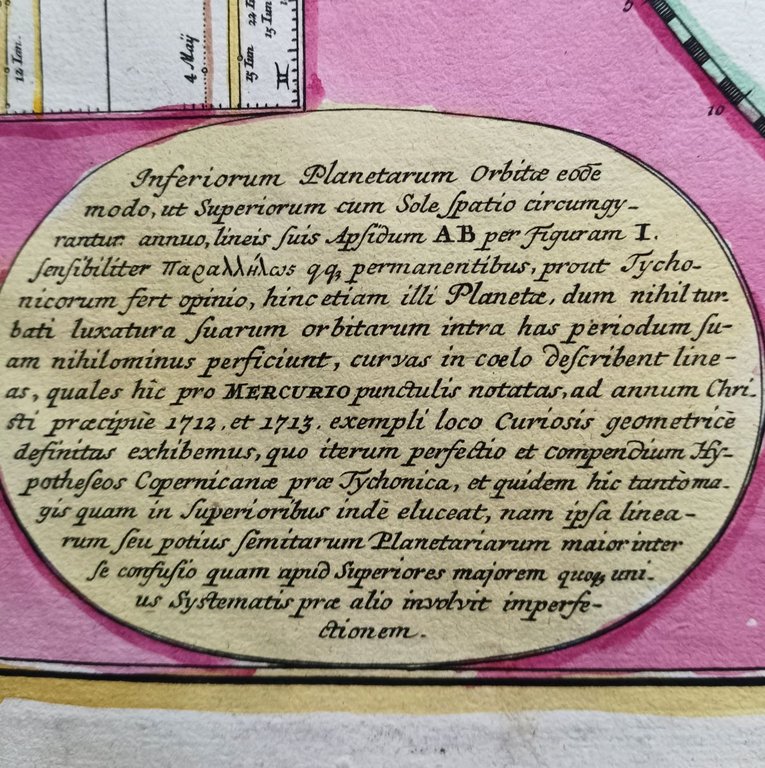 12 Iun.
4 Maÿ
15 Iun
22 Iu
15 Iun
II
5
10
Inferiorum Planetarum Orbitæ eodē
modo, ut Superiorum cum Sole ſpatio circumgy-
rantur annuo, lineis ſuis Apſidum AB per Figuram I.
ſenſibiliter παραλλήλως qq; permanentibus, prout Tycho-
nicorum fert opinio, hinc etiam illi Planetæ, dum nihil tur-
bati luxatura ſuarum orbitarum intra has periodum ſu-
am nihilominus perficiunt, curvas in cœlo deſcribent line-
as, quales hîc pro MERCURIO punctulis notatas, ad annum Chri-
sti præcipùe 1712, et 1713. exempli loco Curiosis geometricè
definitas exhibemus, quo iterum perfectio et compendium Hy-
potheſeos Copernicanæ præ Tychonica, et quidem hic tantò ma-
gis quam in Superioribus indè eluceat, nam ipſa linea-
rum ſeu potius ſemitarum Planetariarum maior inter
ſe confuſio quam apud Superiores majorem quoq; uni-
us Systematis præ alio involvit imperfe-
ctionem.